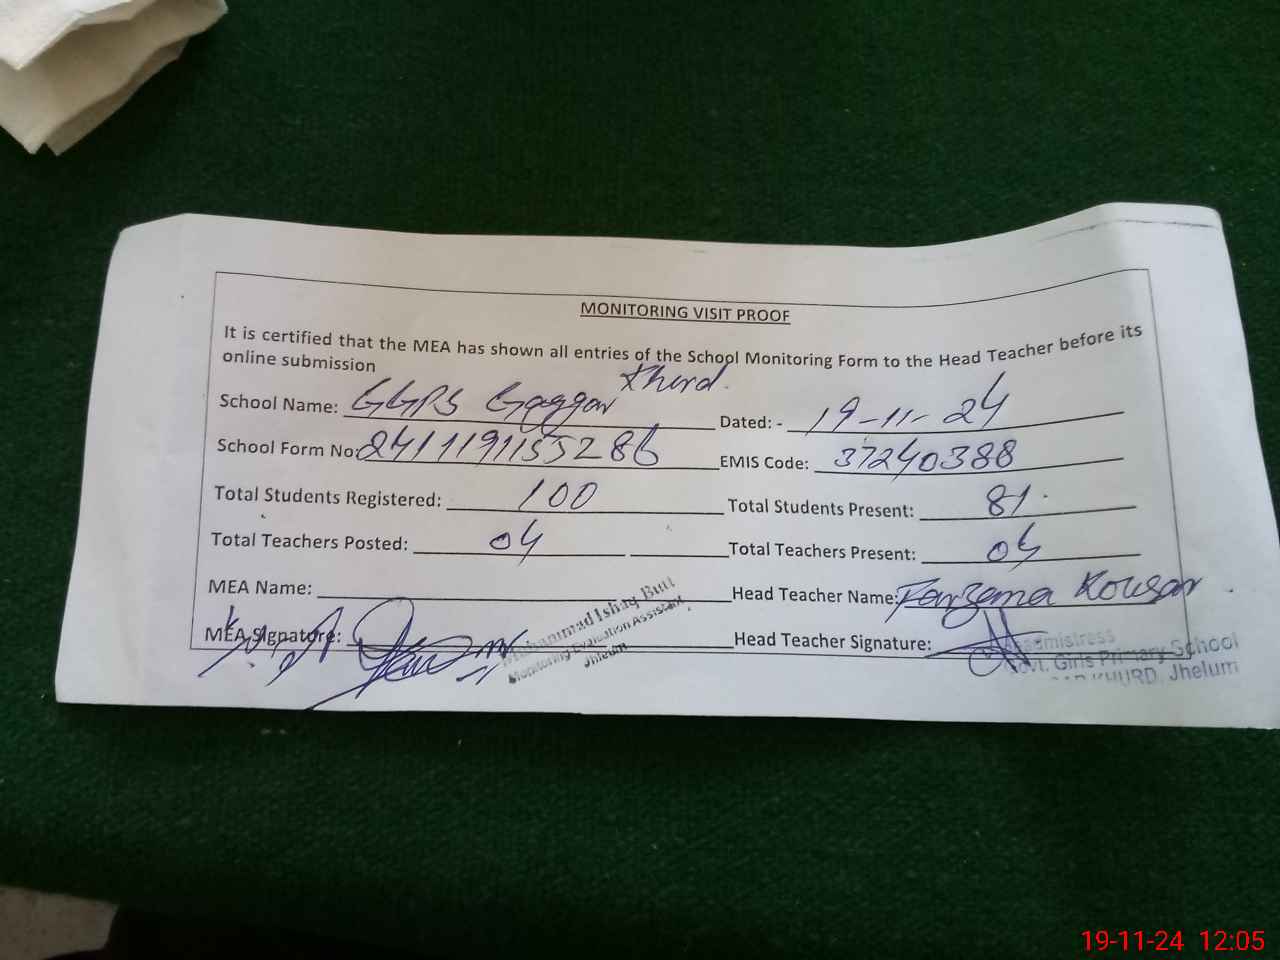 MONITORING VISIT PROOF
It is certified that the MEA has shown all entries of the School Monitoring Form to the Head Teacher before its
online submission
School Name: GGPS Gaggar Khurd. Dated: - 19-11-24
School Form No: 2411191155286 EMIS Code: 37240388
Total Students Registered: 100 Total Students Present: 81
Total Teachers Posted: 04 Total Teachers Present: 04
MEA Name: Head Teacher Name: Farzana Kousar
MEA Signature: Head Teacher Signature:
Muhammad Ishaq Butt
Monitoring Evaluation Assistant
Jhelum
Govt. Girls Primary School
KHURD, Jhelum
19-11-24 12:05